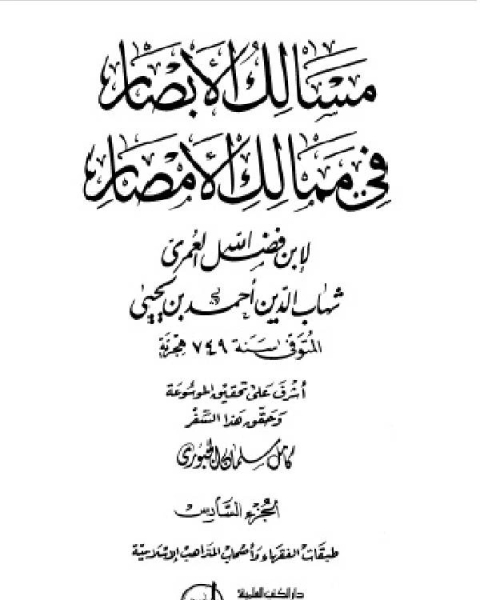 مَسَالِكُ الأَبْصَار
فِي مَمَالِكِ الأَمْصَار
لابن فضل الله العمري
شهاب الدين أحمد بن يحيى
المتوفى سنة ٧٤٩ هجرية
أشرف على تحقيق الموسوعة
وحقق هذا السفر
كامل سلمان الجبوري
الجزء السادس
طبقات الفقهاء وأصحاب المذاهب الإسلامية
دار الكتب العلمية